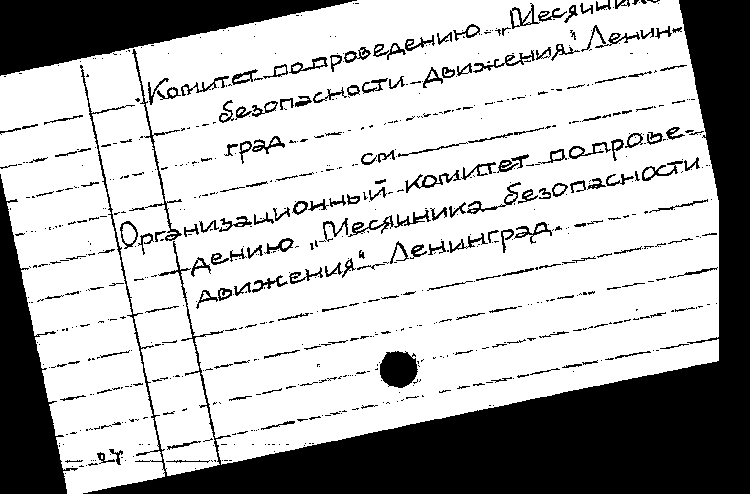 Комитет по проведению „Месячника
безопасности движения“. Ленин-
град.
см.
Организационный комитет по прове-
дению „Месячника безопасности
движения“. Ленинград.